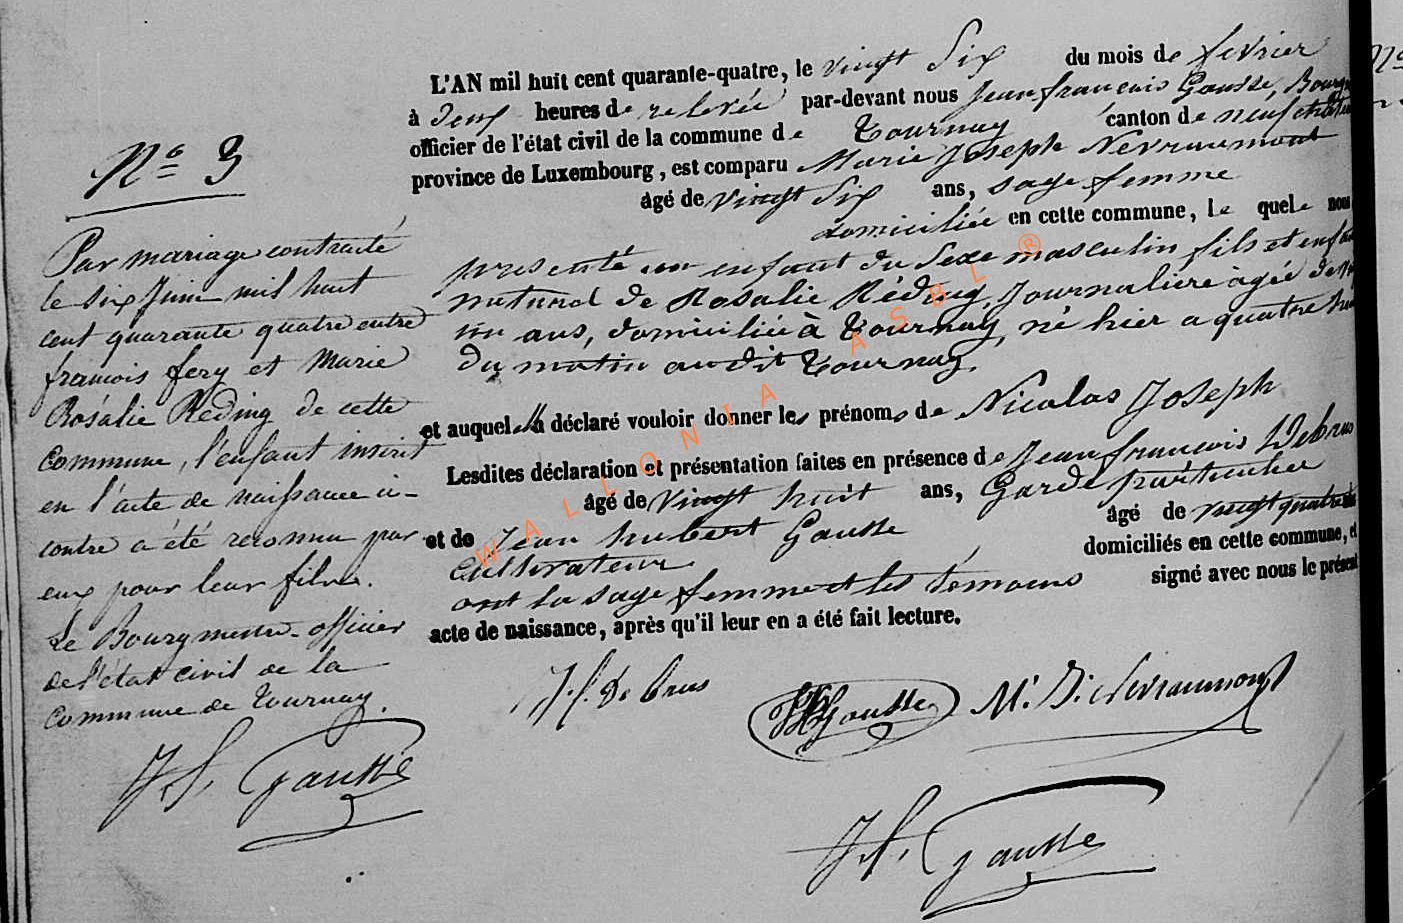 Nº 3
Par mariage contracté
le six Juin mil huit
cent quarante quatre entre
francois fery et Marie
Rosalie Réding de cette
Commune, l'enfant inscrit
en l'acte de naissance ci-
contre a été reconnu par
eux pour leur fils.
Le Bourgmestre officier
de l'état civil de la
Commune de Tournay.
J. f. Gausse
L'AN mil huit cent quarante-quatre, le vingt Six du mois de fevrier
à deux heures de relevée par-devant nous Jean-françois Gausse,
officier de l'état civil de la commune de Tournay canton de
province de Luxembourg, est comparu Marie Joseph Nevraumont
âgé de vingt Six ans, sage femme
domiciliée en cette commune, le quele nous
présenté un enfant du Sexe masculin fils et
naturel de Rosalie Réding, Journalière âgée de
un ans, domiciliée à Tournay, né hier a quatre
du matin audit Tournay.
et auquel a déclaré vouloir donner les prénoms de Nicolas Joseph
Lesdites déclaration et présentation faites en présence de Jean françois Debrus
âgé de vingt huit ans, Garde particulier
et de Jean hubert Gausse âgé de vingt quatre
cultivateur domiciliés en cette commune, et
ont la sage femme et les témoins signé avec nous le présent
acte de naissance, après qu'il leur en a été fait lecture.
J. f. De brus
Gausse
M. J. Nevraumont
J. f. Gausse
WALLONIA ASBL ®